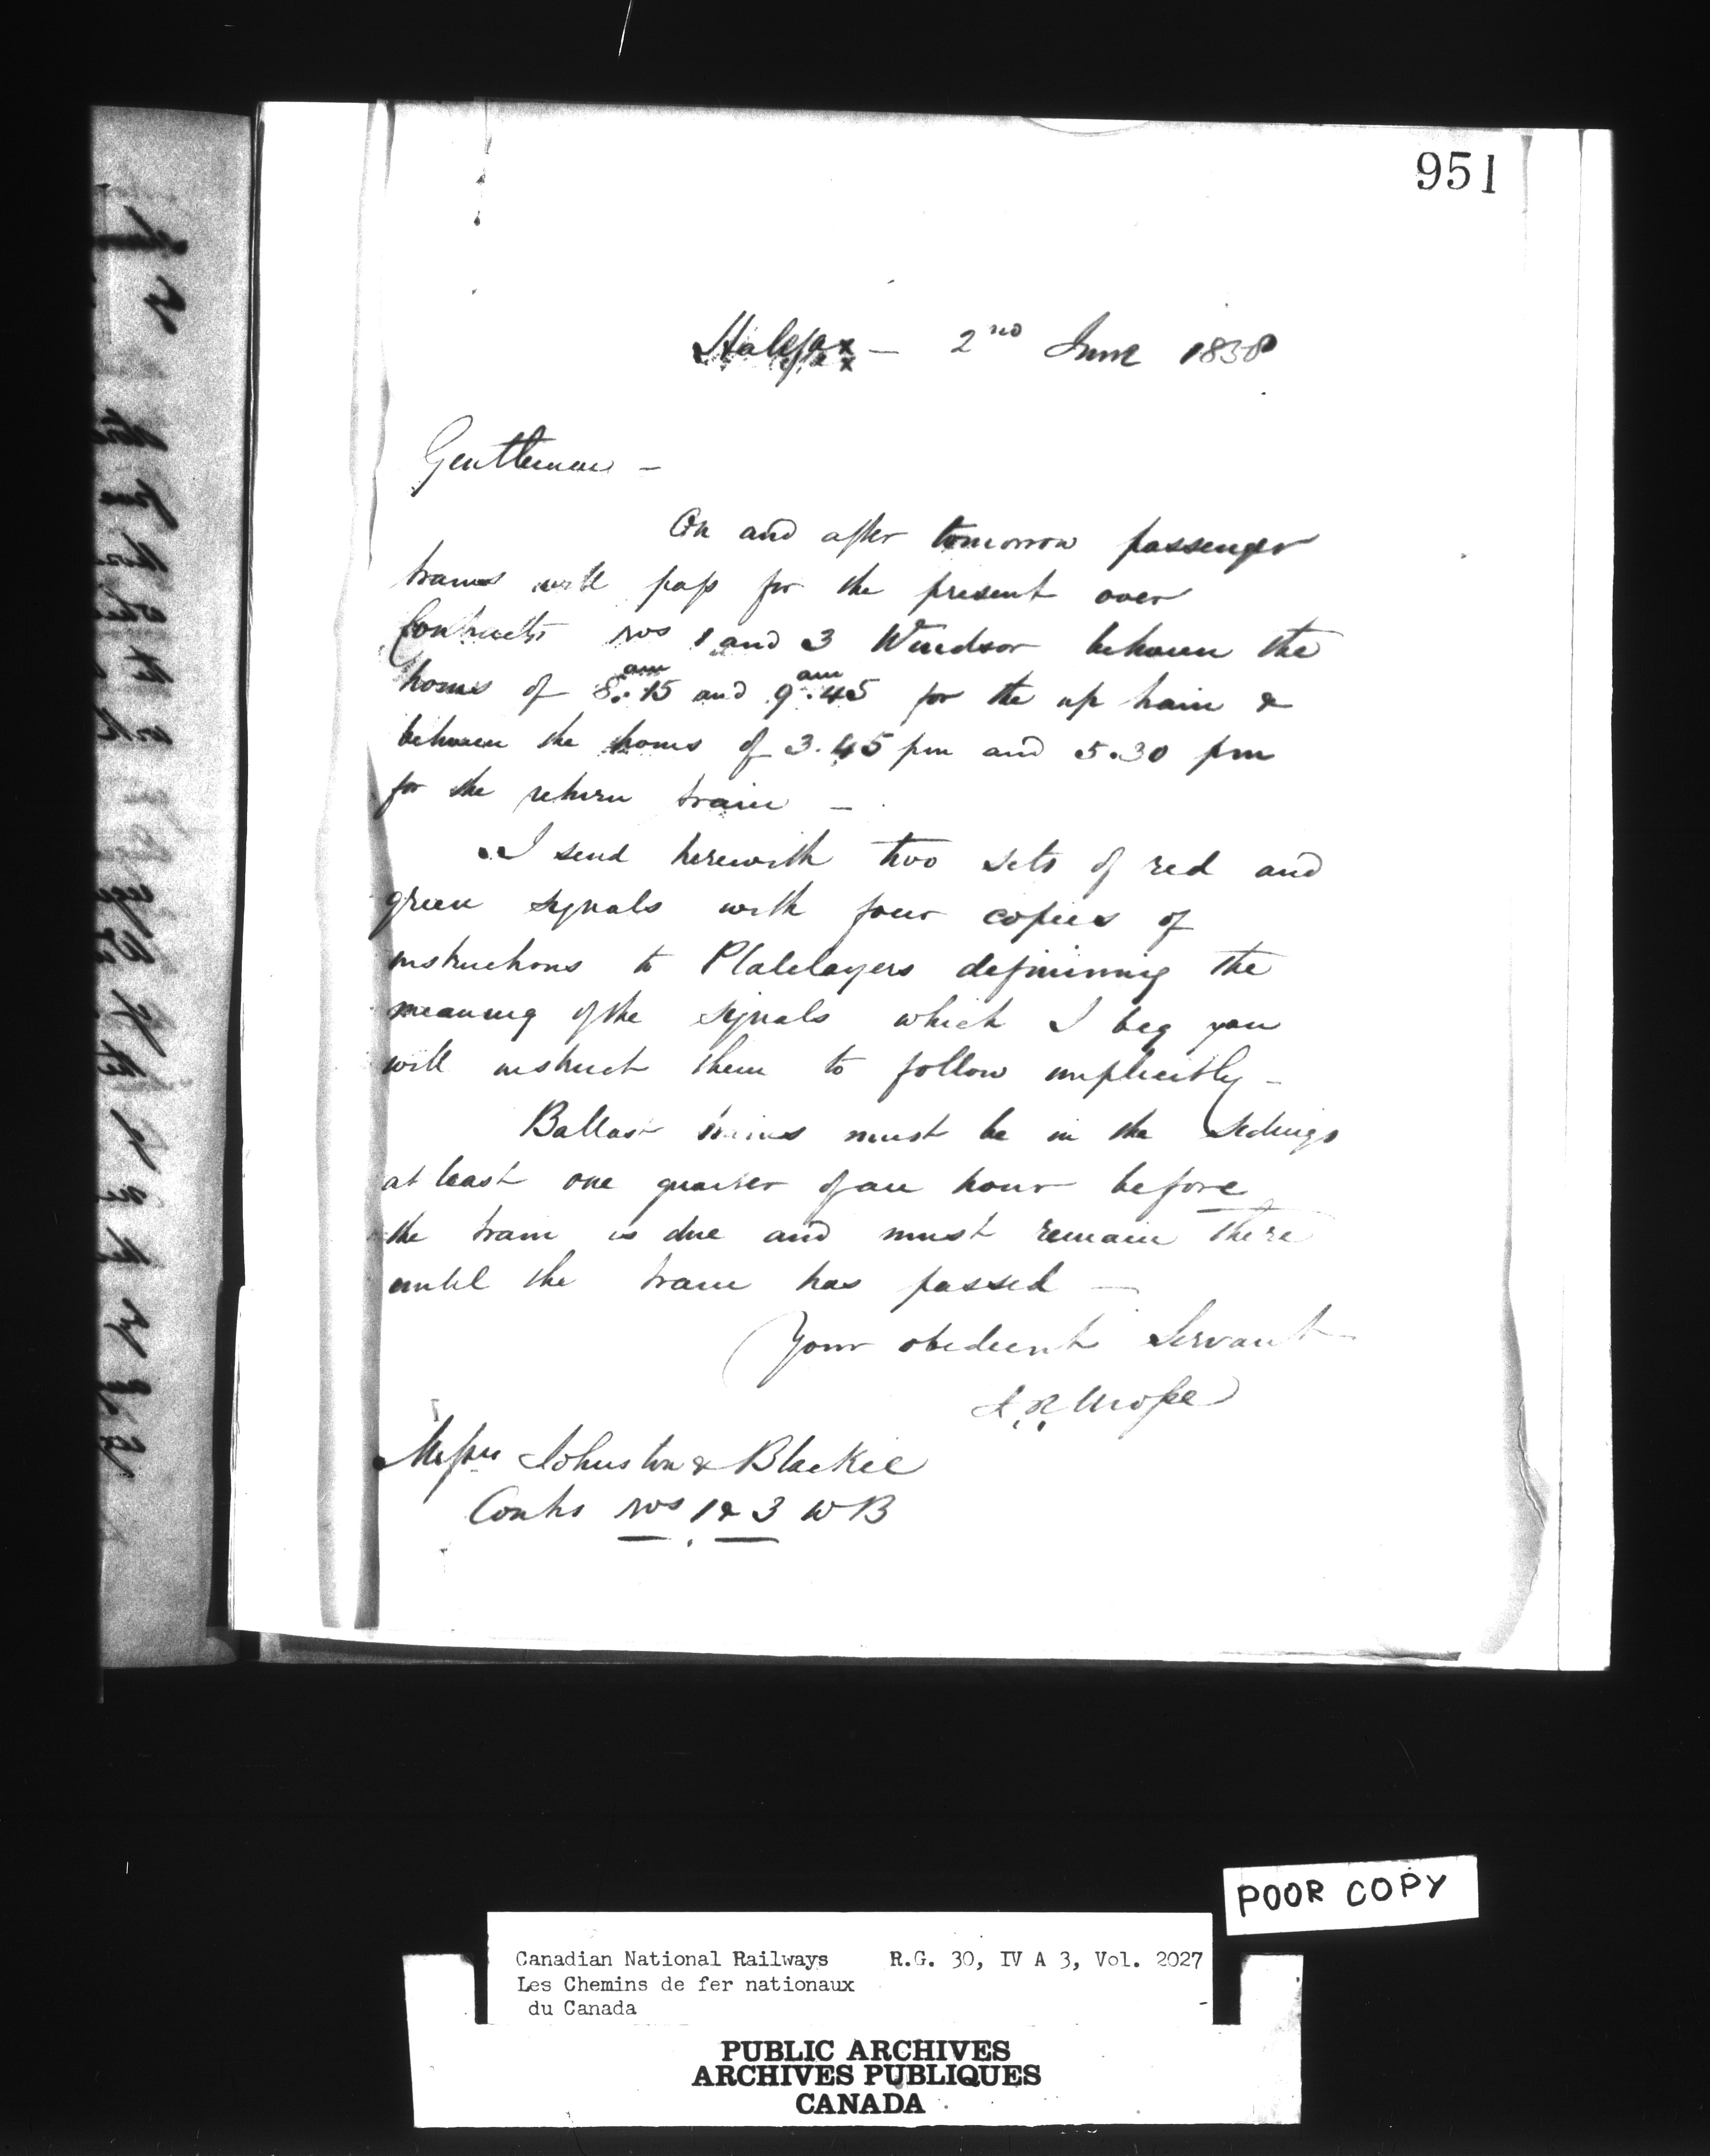 951
Halifax — 2nd June 1858
Gentlemen —
On and after tomorrow passenger
trains will pass for the present over
Contracts Nos 1 and 3 Windsor between the
hours of 8.15 am and 9.45 am for the up train &
between the hours of 3.45 pm and 5.30 pm
for the return train —
I send herewith two sets of red and
green signals with four copies of
instructions to Platelayers definining the
meaning of the signals which I beg you
will instruct them to follow implicitly —
Ballast trains must be in the Sidings
at least one quarter of an hour before
the train is due and must remain there
until the train has passed —
Your obedient Servant
Messrs Johnston & Blackie
Contrs Nos 1 & 3 WB
POOR COPY
Canadian National Railways R.G. 30, IV A 3, Vol. 2027
Les Chemins de fer nationaux
du Canada
PUBLIC ARCHIVES
ARCHIVES PUBLIQUES
CANADA